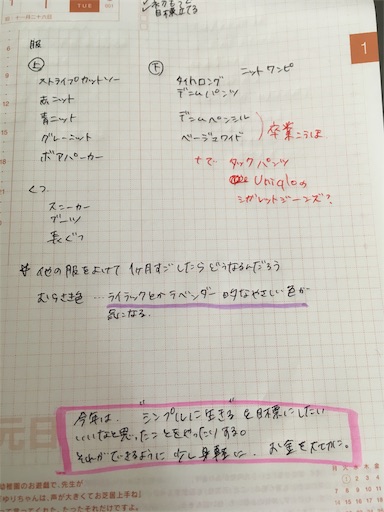 TUE
目標立てる
服
上
ストライプカットソー
赤ニット
青ニット
グレーニット
ボアパーカー
下
ニットワンピ
タイトロング
デニムパンツ
デニムペンシル
ベージュワイド
卒業
タックパンツ
Uniqloの
シガレットジーンズ?
くつ
スニーカー
ブーツ
長ぐつ
他の服をよけて1ヶ月すごしたらどうなるんだろう
むらさき色…ライラックとかラベンダー的なやさしい色が
気になる.
今年は. "シンプルに生きる"を目標にしたい
いいなと思ったことをやったりする。
それができるように少し身軽に.お金を大切に。
元日
幼稚園のお遊戯で、先生が
「ゆりちゃんは、声が大きくてお芝居上手ね」
って言ってくれた。たったそれだけですよ。
1